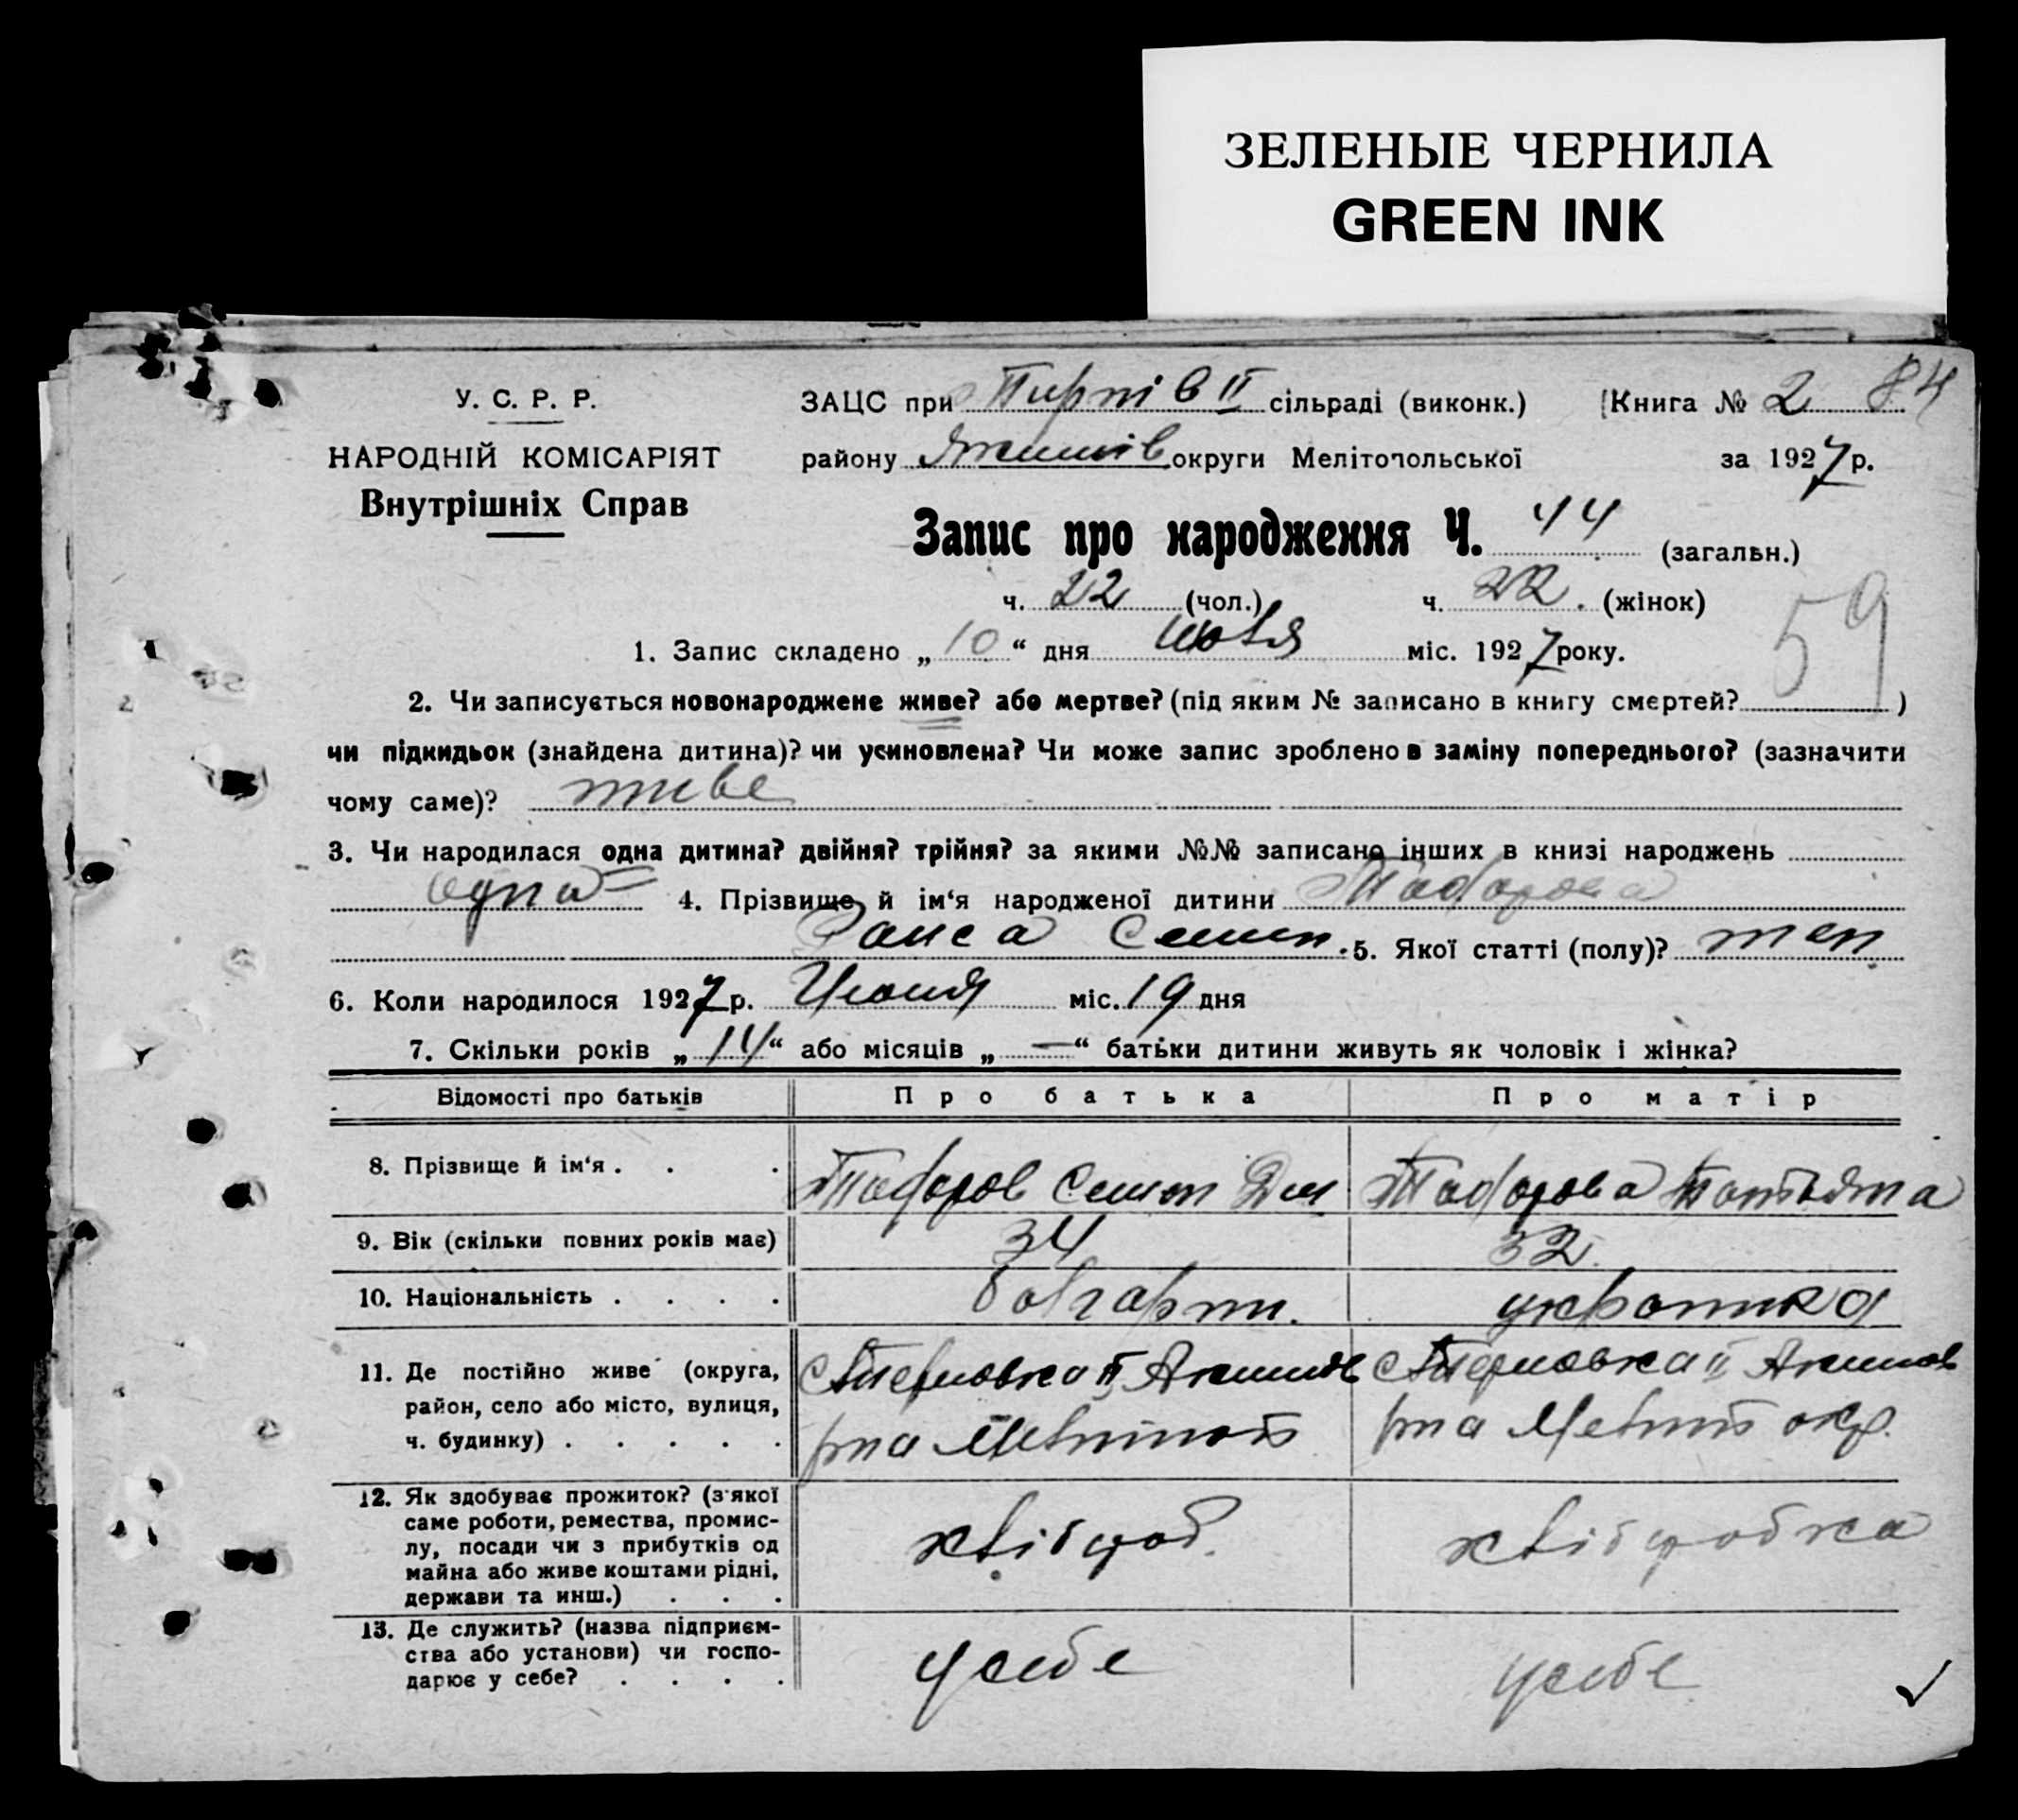 ЗЕЛЕНЫЕ ЧЕРНИЛА
GREEN INK
У. С. Р. Р.
НАРОДНІЙ КОМІСАРІЯТ
Внутрішніх Справ
ЗАЦС при II сільраді (виконк.) Книга № 2 84
району округи Мелітопольської за 1927 р.
Запис про народження Ч. 44 (загальн.)
ч. 22 (чол.) ч. 22. (жінок)
1. Запис складено „ 10 “ дня міс. 1927 року.
59
2. Чи записується новонароджене живе? або мертве? (під яким № записано в книгу смертей? )
чи підкидьок (знайдена дитина)? чи усиновлена? Чи може запис зроблено в заміну попереднього? (зазначити
чому саме)? живе
3. Чи народилася одна дитина? двійня? трійня? за якими №№ записано інших в книзі народжень
одна 4. Прізвище й ім‘я народженої дитини Тодорова
Раиса Семен. 5. Якої статті (полу)? жен
6. Коли народилося 1927 р. Июня міс. 19 дня
7. Скільки років „ 14 “ або місяців „ — “ батьки дитини живуть як чоловік і жінка?
Відомості про батьків Про батька Про матір
8. Прізвище й ім‘я . . . Тодоров Семен Дм Тодорова Татьяна
9. Вік (скільки повних років має) 34 32.
10. Національність . . . . болгарин. украинка
11. Де постійно живе (округа,
район, село або місто, вулиця,
ч. будинку) . . . . .
с Терновка II Акимов
рна Мелитоп
с Терновка II Акимов
рна Мелит окр.
12. Як здобуває прожиток? (з якої
саме роботи, ремества, промис-
лу, посади чи з прибутків од
майна або живе коштами рідні,
держави та инш.) . . .
хлібороб.
хліборобка
13. Де служить? (назва підприєм-
ства або установи) чи госпо-
дарює у себе? . . . .
у себе
у себе